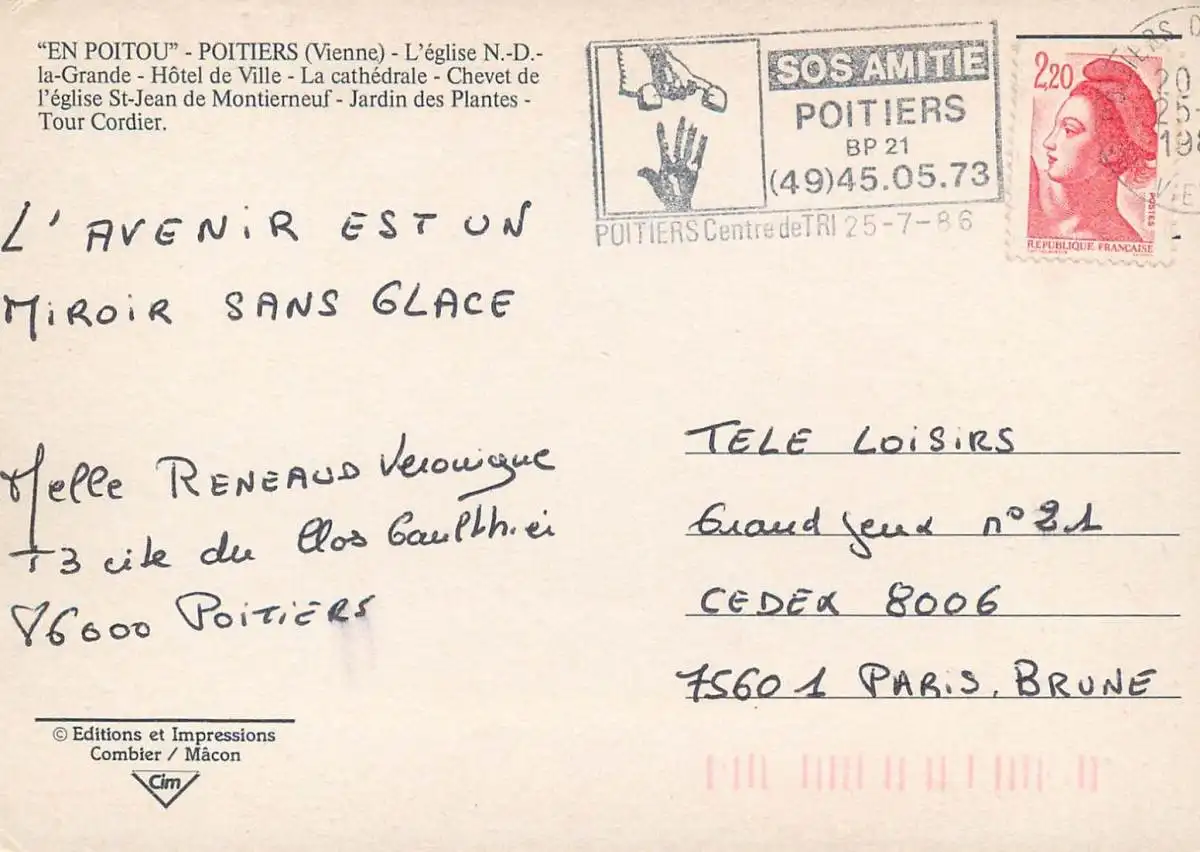 “EN POITOU” - POITIERS (Vienne) - L’église N.-D.-
la-Grande - Hôtel de Ville - La cathédrale - Chevet de
l’église St-Jean de Montierneuf - Jardin des Plantes -
Tour Cordier.
SOS AMITIE
POITIERS
BP 21
(49)45.05.73
POITIERS Centre de TRI 25-7-86
2,20
POSTES
REPUBLIQUE FRANÇAISE
L' AVENIR EST UN
MIROIR SANS GLACE
Melle RENEAUD Veronique
cite du Clos Gaulthier
86000 POITIERS
TELE LOISIRS
Grand Jeux n°
CEDEX 8006
75601 PARIS. BRUNE
© Editions et Impressions
Combier / Mâcon
Cim